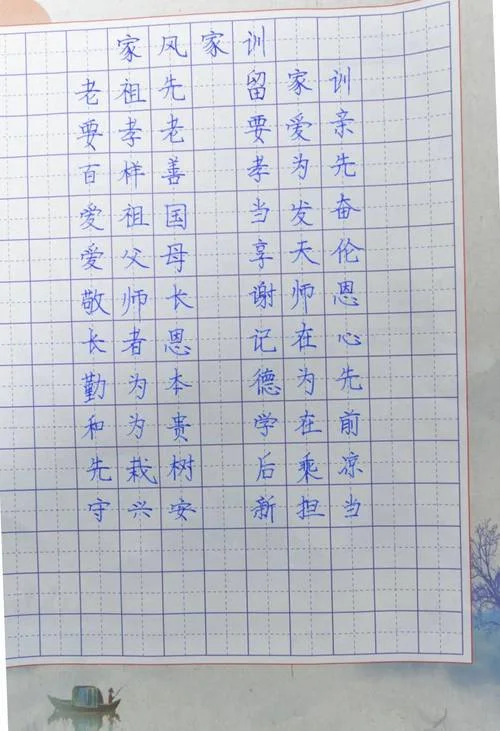 家风家训
老祖先 留家训
要孝老 要爱亲
百样善 孝为先
爱祖国 当发奋
爱父母 享天伦
敬师长 谢师恩
长者恩 记在心
勤为本 德为先
和为贵 学在前
先栽树 后乘凉
守兴安 新担当